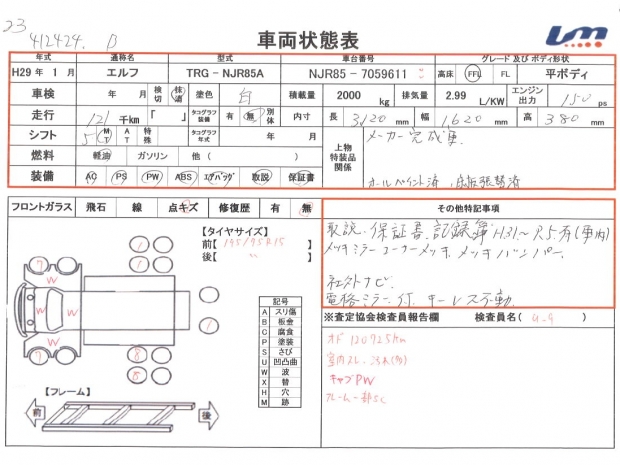 23
412424. B
車両状態表
年式 通称名 型式 車台番号 グレード 及び ボディ形状
H29 年 1 月 エルフ TRG - NJR85A NJR85 - 7059611 高床 FFL FL 平ボディ
車検 年 月 検切 抹消 塗色 白 積載量 2000 kg 排気量 2.99 L/KW エンジン出力 150 ps
走行 121 千km 「 」 タコグラフ装備 有 無 別体 内寸 長 3120 mm 幅 1,620 mm 高 380 mm
シフト 5 MT AT 特殊 タコグラフ年式 年 月 上物特装品関係 メーカー完成車
燃料 軽油 ガソリン 他 ( )
装備 AC PS PW ABS エアバッグ 取説 保証書 オールペイント済 、床板張替済
フロントガラス 飛石 線 点キズ 修復歴 有 無 その他特記事項
【タイヤサイズ】
前【 195/75R15 】
後【 〃 】
取説、保証書、記録簿 H31〜R5有(車内)
メッキミラーコーナーメッキ、メッキバンパー、
社外ナビ
電格ミラー、灯、キーレス不動
※査定協会検査員報告欄 検査員名( )
オド 120925km
キャブPW
フレーム一部SC
記号
A スリ傷
B 板金
C 腐食
P 塗装
S さび
U 凹凸曲
W 波
X 替
H 穴
M 跡
7 7 W W W W W 1 1 1 8 8
【フレーム】
前 後